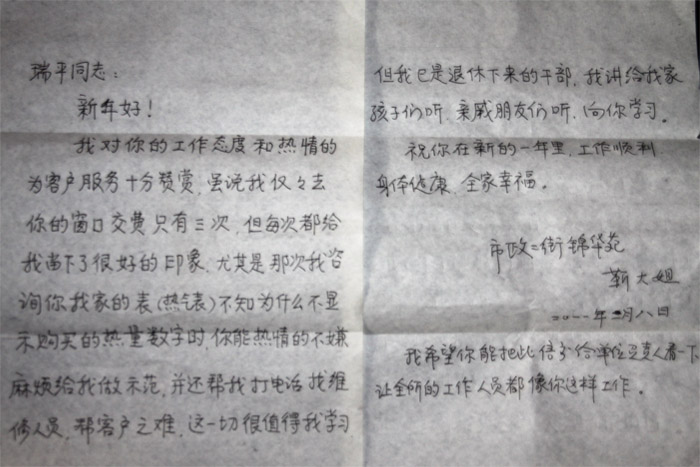 瑞平同志:
新年好!
我对你的工作态度和热情的
为客户服务十分赞赏,虽说我仅々去
你的窗口交费只有三次,但每次都给
我留下了很好的印象,尤其是那次我咨
询你我家的表(热表)不知为什么不显
示购买的热量数字时,你能热情的不嫌
麻烦给我做示范,并还帮我打电话找维
修人员,帮客户之难,这一切很值得我学习
但我已是退休下来的干部,我讲给我家
孩子们听,亲戚朋友们听,向你学习。
祝你在新的一年里,工作顺利
身体健康,全家幸福。
市政二街锦华苑
靳大姐
二〇一一年二月八日
我希望你能把此信给单位负责人看一下
让全所的工作人员都像你这样工作。